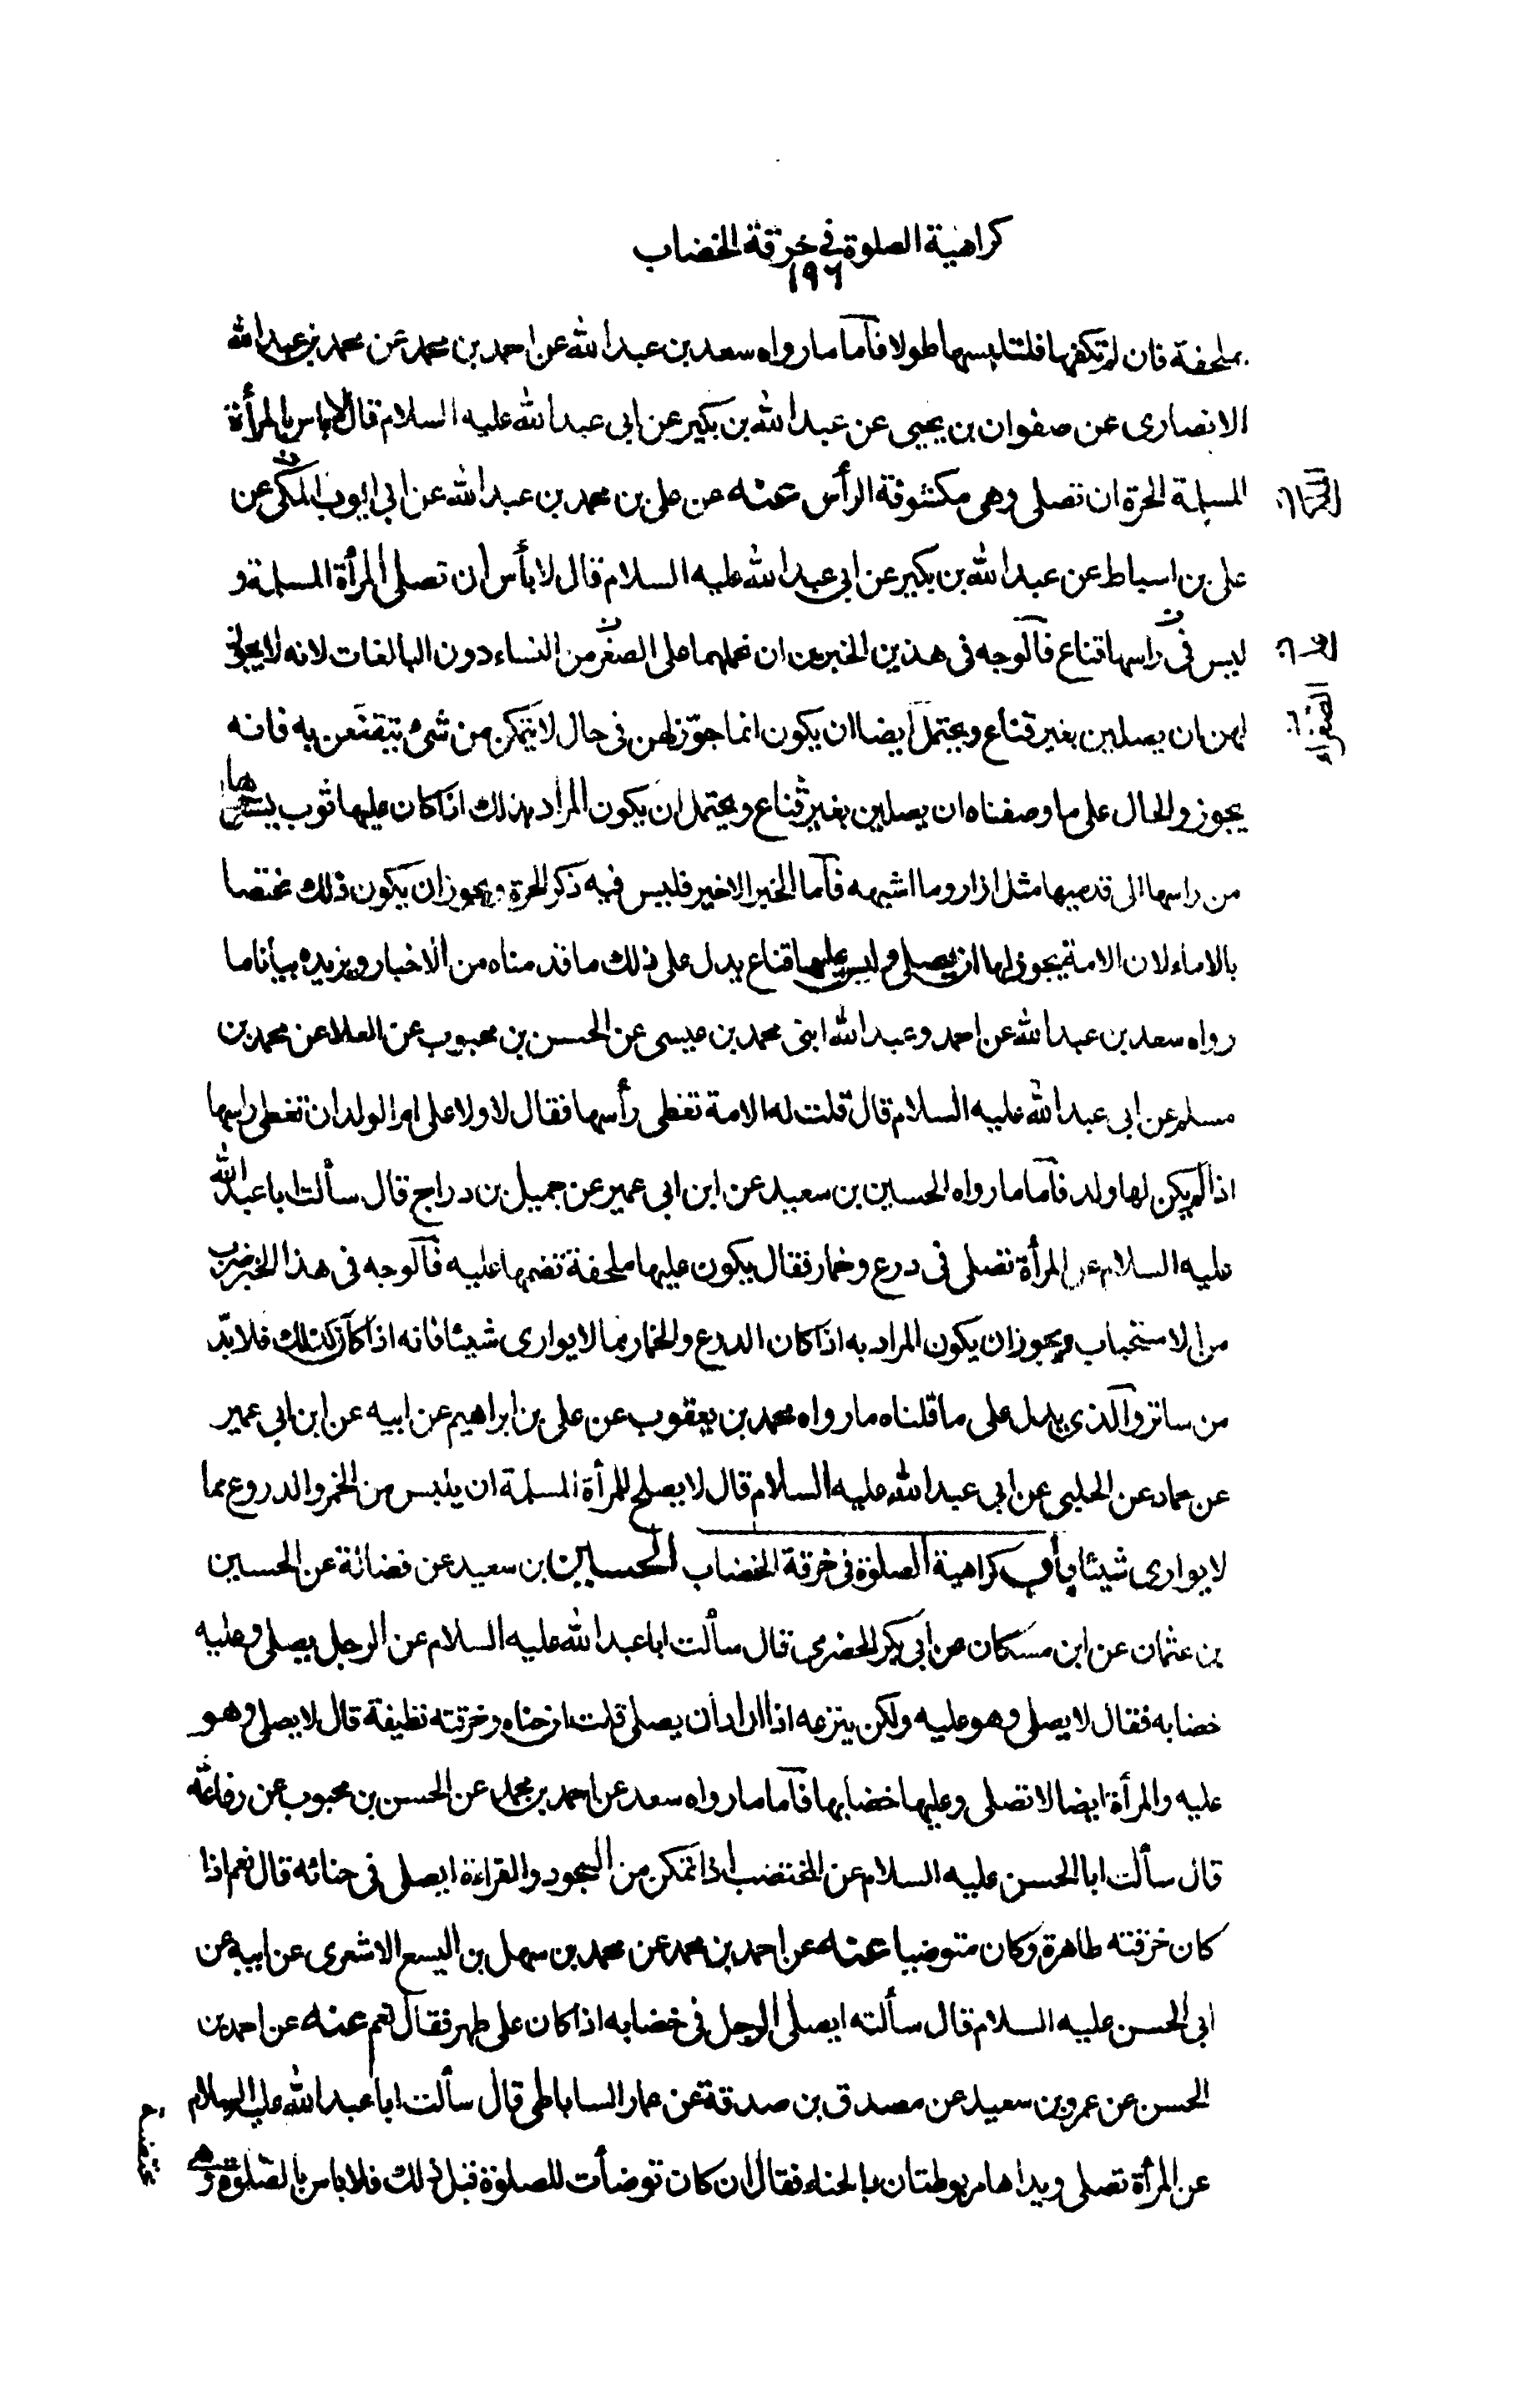 كراهية الصلوة فى خرقة الخضاب
١٩٦
بملحفة فان لم تكفها فلتلبسها طولا فآما ما رواه سعد بن عبد الله عن احمد بن محمد عن محمد بن عبد الله
الانصارى عن صفوان بن يحيى عن عبد الله بن بكير عن ابى عبد الله عليه السلام قال لا باس بالمرأة
المسلمة الحرة ان تصلى وهى مكشوفة الرأس عنه عن على بن محمد بن عبد الله عن ابى ايوب المكى عن
على بن اسباط عن عبد الله بن بكير عن ابى عبد الله عليه السلام قال لا بأس ان تصلى المرأة المسلمة و
ليس فى راسها قناع فآلوجه فى هذين الخبرين ان نحملهما على الصغر من النساء دون البالغات لانه لا يجوز
لهن ان يصلين بغير قناع ويحتمل ايضا ان يكون انما جوّز لهن فى حال لا يتمكن من شئ يتقنّعن به فانه
يجوز والحال على ما وصفناه ان يصلين بغير قناع ويحتمل ان يكون المراد بذلك اذا كان عليها ثوب يسترها
من راسها الى قدميها مثل ازار وما اشبهه فآما الخبر الاخير فليس فيه ذكر الحرة ويجوز ان يكون ذلك مختصا
بالاماء لان الامة يجوز لها ان يصلى وليس عليها قناع يدل على ذلك ما قدمناه من الاخبار ويزيده بيانا ما
رواه سعد بن عبد الله عن احمد وعبد الله ابنى محمد بن عيسى عن الحسن بن محبوب عن العلا عن محمد بن
مسلم عن ابى عبد الله عليه السلام قال قلت له الامة تغطى رأسها فقال لا ولا على ام الولد ان تغطى راسها
اذا لم يكن لها ولد فآما ما رواه الحسين بن سعيد عن ابن ابى عمير عن جميل بن دراج قال سألت ابا عبد الله
عليه السلام عن المرأة تصلى فى درع وخمار فقال يكون عليها ملحفة تضمها عليه فآلوجه فى هذا الخبر ضرب
من الاستحباب ويجوز ان يكون المراد به اذا كان الدرع والخمار مما لا يوارى شيئا فانه اذا كان كذلك فلا بدّ
من ساتر وآلذى يدل على ما قلناه ما رواه محمد بن يعقوب عن على بن ابراهيم عن ابيه عن ابن ابى عمير
عن حماد عن الحلبى عن ابى عبد الله عليه السلام قال لا يصلح للمرأة المسلمة ان يلبس من الخمر والدروع مما
لا يوارى شيئا باب كراهية الصلوة فى خرقة الخضاب الحسين بن سعيد عن فضالة عن الحسين
بن عثمان عن ابن مسكان عن ابى بكر الحضرمى قال سألت ابا عبد الله عليه السلام عن الرجل يصلى وعليه
خضابه فقال لا يصلى وهو عليه ولكن ينزعه اذا اراد ان يصلى قلت ان حناه وخرقته نظيفة قال لا يصلى وهو
عليه والمرأة ايضا لا تصلى وعليها خضابها فآما ما رواه سعد عن احمد بن محمد عن الحسن بن محبوب عن رفاعة
قال سألت ابا الحسن عليه السلام عن المختضب اذا تمكن من السجود والقراءة ايصلى فى حنائه قال نعم اذا
كان خرقته طاهرة وكان متوضيا عنه عن احمد بن محمد عن محمد بن سهل بن اليسع الاشعرى عن ابيه عن
ابى الحسن عليه السلام قال سألته ايصلى الرجل فى خضابه اذا كان على طهر فقال نعم عنه عن احمد بن
الحسن عن عمرو بن سعيد عن مصدق بن صدقة عن عمار الساباطى قال سألت ابا عبد الله عليه السلام
عن المرأة تصلى ويداها مربوطتان بالحناء فقال ان كان توضأت للصلوة قبل ذلك فلا باس بالصلوة وهى